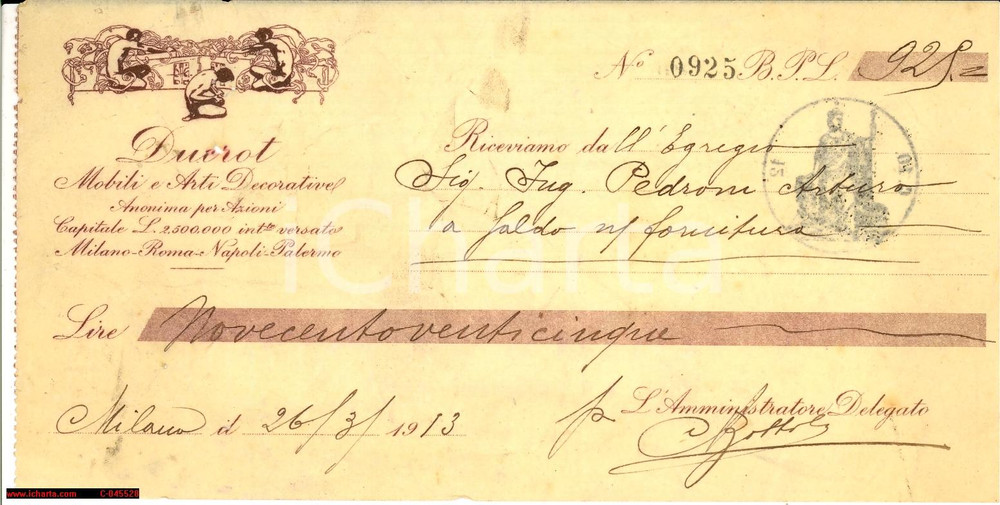 Nº 0925 B.P.L. 925.=
Ducrot
Mobili e Arti Decorative
Anonima per Azioni
Capitale L. 2,500.000 int.to versato
Milano-Roma-Napoli-Palermo
Riceviamo dall'Egregio
Sig. Ing. Pedroni Arturo
a saldo n/ fornitura
iCharta
Lire Novecentoventicinque
Milano il 26/3/1913
p L'Amministratore Delegato
www.icharta.com C-045528